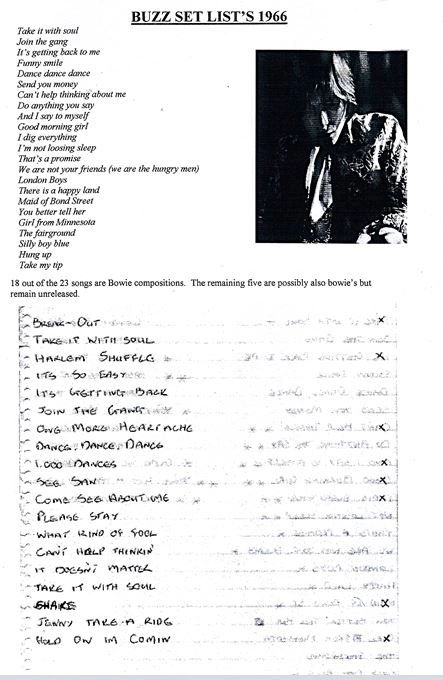 BUZZ SET LIST'S 1966
Take it with soul
Join the gang
It's getting back to me
Funny smile
Dance dance dance
Send you money
Can't help thinking about me
Do anything you say
And I say to myself
Good morning girl
I dig everything
I'm not loosing sleep
That's a promise
We are not your friends (we are the hungry men)
London Boys
There is a happy land
Maid of Bond Street
You better tell her
Girl from Minnesota
The fairground
Silly boy blue
Hung up
Take my tip
18 out of the 23 songs are Bowie compositions. The remaining five are possibly also bowie's but
remain unreleased.
BREAK-OUT x
TAKE IT WITH SOUL
HARLEM SHUFFLE x
ITS SO EASY
IT'S GETTING BACK
JOIN THE GANG
ONE MORE HEARTACHE x
DANCE, DANCE, DANCE
1,000 DANCES x
SEE SAW x
COME SEE ABOUT ME x
PLEASE STAY
WHAT KIND OF FOOL
CAN'T HELP THINKIN'
IT DOESN'T MATTER
TAKE IT WITH SOUL
SHAKE x
JENNY TAKE A RIDE
HOLD ON IM COMIN x